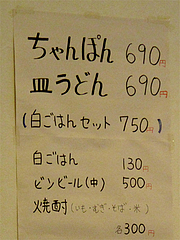 ちゃんぽん 690円
皿うどん 690円
(白ごはんセット 750円)
白ごはん 130円
ビンビール(中) 500円
焼酎(いも・むぎ・そば・米)
各300円